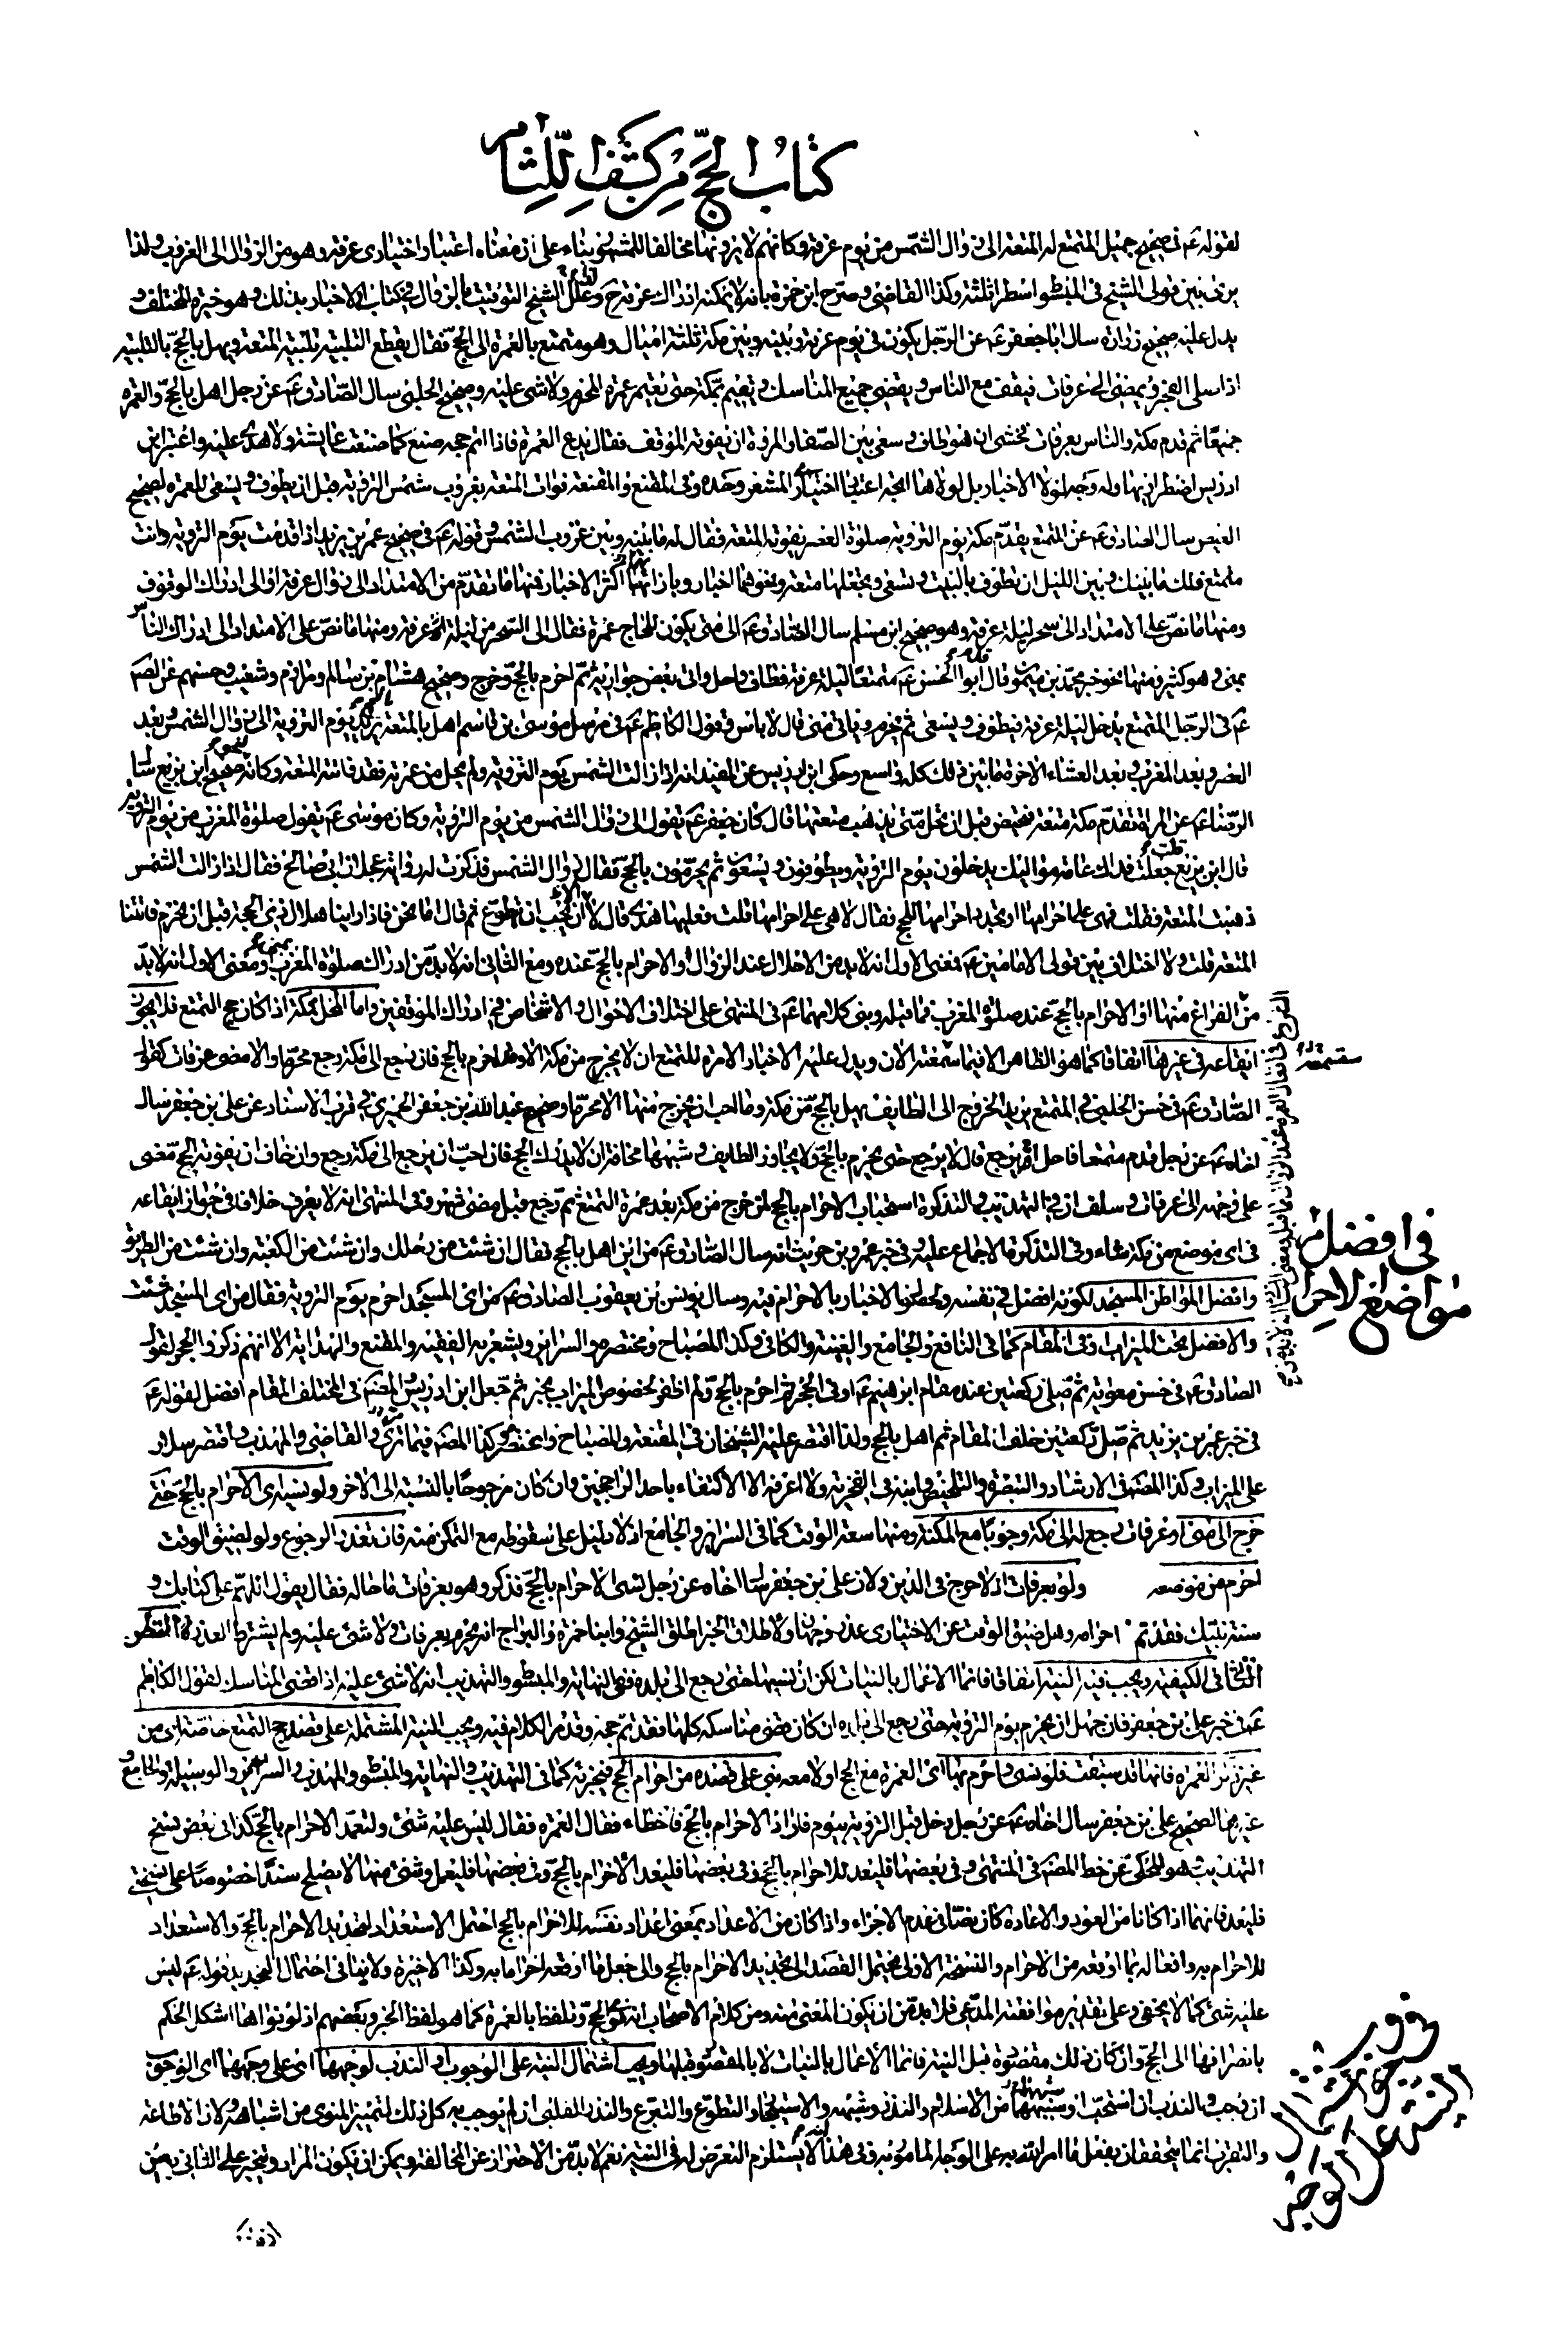 كتاب الحج من كشف اللثام
لقوله ع في صحيح جميل المتمتع له المتعة الى زوال الشمس من يوم عرفة وكانهم لا يرونها مخالفا للمشهور بناء على ان معناه اعتبار اختياري عرفة وهو من الزوال الى الغروب ولذا
ترى بين قولي الشيخ في المبسوط اسطرا ثلثة وكذا القاضي وصرح ابن حمزة بانه لا يمكنه ادراك عرفة ح وعلل الشيخ التوقيت بالزوال في كتابي الاخبار بذلك وهو خيرة المختلف و
يدل عليه صحيح زرارة سال ابا جعفر ع عن الرجل يكون في يوم عرفة وبينه وبين مكة ثلثة اميال وهو متمتع بالعمرة الى الحج فقال يقطع التلبية تلبية المتعة ويهل بالحج بالتلبية
اذا صلى الفجر ويمضي الى عرفات فيقف مع الناس ويقضي جميع المناسك ويقيم بمكة حتى يعتمر عمرة المحرم ولا شئ عليه وصحيح الحلبي سال الصادق ع عن رجل اهل بالحج والعمرة
جميعا ثم قدم مكة والناس بعرفات فخشى ان هو طاف وسعى بين الصفا والمروة ان يفوته الموقف فقال يدع العمرة فاذا اتم حجه صنع كما صنعت عايشة ولا هدى عليه واعتبر ابن
ادريس اضطراريها وله وجه لولا الاخبار بل لولاها اتجه اعتبار اختياري المشعر وحده وفي المقنع والمقنعة فوات المتعة بغروب شمس التروية قبل ان يطوف ويسعى للعمرة لصحيح
العيص سال الصادق ع عن المتمتع يقدم مكة يوم التروية صلوة العصر يفوته المتعة فقال له ما بينه وبين غروب الشمس وقوله ع في صحيح عمر بن يزيد اذا قدمت يوم التروية وانت
متمتع فلك ما بينك وبين الليل ان تطوف بالبيت وتسعى وتجعلها متعة ونحوهما اخبار وبازائها اكثر الاخبار فمنها ما تقدم من الامتداد الى زوال عرفة او الى ادراك الوقوف
ومنها ما نص على الامتداد الى سحر ليلة عرفة وهو صحيح ابن مسلم سال الصادق ع الى متى يكون للحاج عمرة فقال الى السحر من ليلة عرفة ومنها ما نص على الامتداد الى ادراك الناس
بمنى وهو كثير ومنها نحو خبر محمد بن ميمون قال قدم ابو الحسن ع متمتعا ليلة عرفة فطاف واحل واتى بعض جواريه ثم احرم بالحج وخرج وصحيح هشام بن سالم ومرازم وشعيب وحسنهم عن الص
ع في الرجل المتمتع يدخل ليلة عرفة فيطوف ويسعى ثم يحرم وياتي منى قال لا باس وقول الكاظم ع في مرسل موسى بن قاسم اهل بالمتعة بالحج يوم التروية الى زوال الشمس وبعد
العصر وبعد المغرب وبعد العشاء الاخرة ما بين ذلك كله واسع وحكى ابن ادريس عن المفيد انه اذا زالت الشمس يوم التروية ولم يحل من عمرته فقد فاتته المتعة وكانه لصحيح ابن بزيع سال
الرضا ع عن المراة تقدم مكة متمتعة فتحيض قبل ان تحل متى يذهب متعتها قال كان جعفر ع يقول الى زوال الشمس من يوم التروية وكان موسى ع يقول صلوة المغرب من يوم التروية
قال ابن بزيع قلت جعلت فداك عامة مواليك يدخلون يوم التروية ويطوفون ويسعون ثم يحرمون بالحج فقال زوال الشمس فذكرت له رواية عجلان ابي صالح فقال اذا زالت الشمس
ذهبت المتعة فقلت فهي على احرامها او تجدد احرامها للحج فقال لا هي على احرامها قلت فعليها هدى قال لا الا ان تحب ان تطوع ثم قال اما نحن فاذا راينا هلال ذي الحجة قبل ان نحرم فاتتنا
المتعة قلت ولا اختلاف بين قولي الامامين ع فمعنى الاول انه لا بد من الاحلال عند الزوال والاحرام بالحج عنده ومع الثاني انه لا بد من ادراك صلوة المغرب بمنى ومعنى الاول انه لا بد
من الفراغ منها او الاحرام بالحج عند صلوة المغرب فما قبله وبنى كلامهما ع في المنتهى على اختلاف الاحوال والاشخاص في ادراك الموقفين واما المحل فمكة اذا كان حج التمتع فلا يجوز
ايقاعه في غيرها اتفاقا كما هو الظاهر الا فيما ستسمعه الان ويدل عليه الاخبار الامرة للمتمتع ان لا يخرج من مكة الا وقد احرم بالحج فان رجع الى مكة رجع محرما والا مضى عرفات كقول
الصادق ع في حسن الحلبي في المتمتع يريد الخروج الى الطايف يهل بالحج من مكة وما احب ان يخرج منها الا محرما وصحيح عبد الله بن جعفر الحميري في قرب الاسناد عن علي بن جعفر سال
اخاه ع عن رجل قدم متمتعا فاحل ايرجع قال لا يرجع حتى يحرم بالحج ولا يجاوز الطايف وشبهها مخافة ان لا يدرك الحج فان احب ان يرجع الى مكة رجع وان خاف ان يفوته الحج مضى
على وجهه الى عرفات وسلف ان في التهذيب والتذكرة استحباب الاحرام بالحج لمن خرج من مكة بعد عمرة التمتع ثم رجع قبل مضى شهر وفي المنتهى انه لا يعرف خلافا في جواز ايقاعه
في اي موضع من مكة شاء وفي التذكرة الاجماع عليه وفي خبر عمرو بن حريث انه سال الصادق ع من اين اهل بالحج فقال ان شئت من رحلك وان شئت من الكعبة وان شئت من الطريق
وافضل المواطن المسجد لكونه افضل في نفسه ولحظوا الاخبار بالاحرام فيه وسال يونس بن يعقوب الصادق ع من اي المسجد احرم يوم التروية فقال من اي المسجد شئت
والافضل تحت الميزاب وفي المقام كما في النافع والجامع والغنية والكافي وكذا المصباح ومختصره والسراير ويشعر به الفقيه والمقنع والهداية الا انهم ذكروا الحجر لقول
الصادق ع في حسن معوية ثم صل ركعتين عند مقام ابرهيم ع او في الحجر ثم احرم بالحج ولم اظفر لخصوص الميزاب بخبر ثم جعل ابن ادريس المص في المختلف المقام افضل لقوله ع
في خبر عمر بن يزيد ثم صل ركعتين خلف المقام ثم اهل بالحج ولذا اقتصر عليه الشيخان في المقنعة والمصباح ومختصره وكذا المص فيما ترى والقاضي والمهذب واقتصر سلار
على الميزاب وكذا المص في الارشاد والتبصرة والتلخيص وابنه في الفخرية ولا اعرفه الا الاكتفاء باحد الراجحين وان كان مرجوحا بالنسبة الى الاخر ولو نسيه اي الاحرام بالحج حتى
خرج الى منى او عرفات رجع له الى مكة وجوبا مع المكنة ومنها سعة الوقت كما في السراير والجامع اذ لا دليل على سقوطه مع التمكن منه فان تعذر الرجوع ولو لضيق الوقت
احرم من موضعه ولو بعرفات اذ لا حرج في الدين ولان علي بن جعفر سال اخاه عن رجل نسى الاحرام بالحج فذكر وهو بعرفات ما حاله فقال يقول اللهم على كتابك و
سنة نبيك فقد تم احرامه وهل ضيق الوقت عن الاختياري عذر وجهان ولاطلاق الخبر اطلق الشيخ وابنا حمزة والبراج انه يحرم بعرفات ولا شئ عليه ولم يشترط العذر
الثاني الكيفية ويجب فيه النية اتفاقا فانما الاعمال بالنيات لكن ان نسيها حتى رجع الى بلده ففي النهاية والمبسوط والتهذيب انه لا شئ عليه اذا قضى المناسك لقول الكاظم
ع في خبر علي بن جعفر فان جهل ان يحرم يوم التروية حتى رجع الى بلده ان كان قضى مناسكه كلها فقد تم حجه وقد مر الكلام فيه ويجب النية المشتملة على قصد حج التمتع خاصة اي من
غير ذكر العمرة فانها قد سبقت فلو نسى واحرم بها اي العمرة مع الحج او لا معه بنى على قصده من احرام الحج فيجزيه كما في التهذيب والنهاية والمبسوط والمهذب والسراير والوسيلة والجامع و
غيرها لصحيح علي بن جعفر سال اخاه ع عن رجل دخل قبل التروية بيوم فاراد الاحرام بالحج فاخطاء فقال العمرة فقال ليس عليه شئ وليعد الاحرام بالحج كذا في بعض نسخ
التهذيب وهو المحكى عن خط المص في المنتهى وفي بعضها فليعد للاحرام بالحج وفي بعضها فليعد الاحرام بالحج وفي بعضها فليعمل وشئ منها لا يصلح سندا خصوصا على نسختي
فليعد فانهما اذا كانا من العود والاعادة كان نصا في عدم الاجزاء واذا كان من الاعداد بمعنى اعداد نفسه للاحرام بالحج احتمل الاستعداد لتجديد الاحرام بالحج والاستعداد
للاحرام به وافعاله بما اوقعه من الاحرام والنسخة الاولى تحتمل القصد الى تجديد الاحرام بالحج والى جعل ما اوقعه احراما به وكذا الاخيرة ولا ينافي احتمال التجديد قوله ع ليس
عليه شئ كما لا يخفى وعلى تقدير موافقته المدعى فلا بد من ان يكون المعنى منه ومن كلام الاصحاب انه نوى الحج وتلفظ بالعمرة كما هو لفظ الخبر وبعضهم اذ لو نواها اشكل الحكم
بانصرافها الى الحج وان كان ذلك مقصوده قبل النية فانما الاعمال بالنيات لا بالمقصود قبلها ويجب اشتمال النية على الوجوب او الندب لوجههما اي على وجههما اي الوجوب
ان وجب والندب ان استحب او سببهما من الاسلام والنذر وشبهه والاستيجار والتطوع والتبرع والنذر القلبي ان لم يوجب به كل ذلك لتميز المنوى من اشباهه ولان الاطاعة
والتقرب انما يتحققان بفعل ما امر الله به على الوجه المامور به وفي هذا انه لا يستلزم التعرض له في النية نعم لا بد من الاحتراز عن المخالفة ويمكن ان يكون المراد وتنجيز على الثاني بعض
في افضل مواضع الاحرام
في وجوب اشتمال النية على الوجه